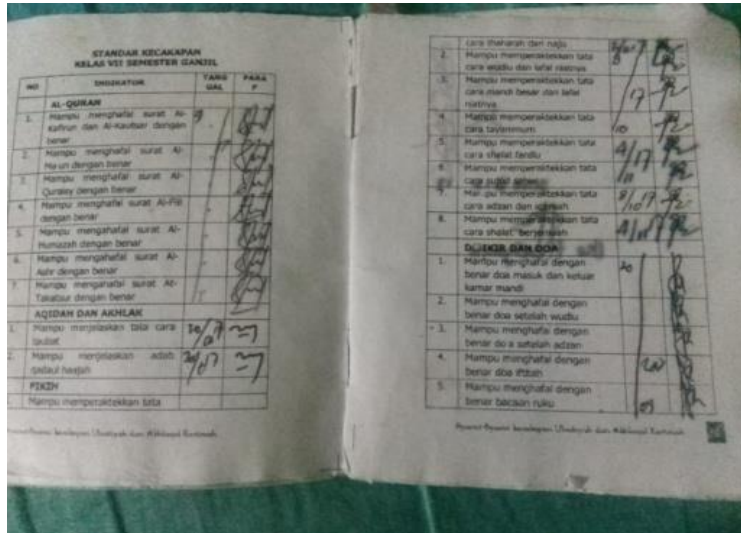 STANDAR KECAKAPAN
KELAS VII SEMESTER GANJIL
NO INDIKATOR TANG PARA
GAL F
AL-QURAN
1. Mampu menghafal surat Al-
Kafirun dan Al-Kautsar dengan
benar
2. Mampu menghafal surat Al-
Ma'un dengan benar
3. Mampu menghafal surat Al-
Quraisy dengan benar
4. Mampu menghafal surat Al-Fiil
dengan benar
5. Mampu menghafal surat Al-
Humazah dengan benar
6. Mampu menghafal surat Al-
Ashr dengan benar
7. Mampu menghafal surat At-
Takatsur dengan benar
AQIDAH DAN AKHLAK
1. Mampu menjelaskan tata cara
taubat
2. Mampu menjelaskan adab
qadaul haajah
FIKIH
Mampu memperaktekkan tata
cara thaharah dari najis
2. Mampu memperaktekkan tata
cara wudlu dan lafal niatnya
3. Mampu memperaktekkan tata
cara mandi besar dan lafal
niatnya
4. Mampu memperaktekkan tata
cara tayammum
5. Mampu memperaktekkan tata
cara shalat fardlu
6. Mampu memperaktekkan tata
cara sujud
7. Mampu memperaktekkan tata
cara adzan dan iqamah
8. Mampu memperaktekkan tata
cara shalat berjamaah
DZIKIR DAN DOA
1. Mampu menghafal dengan
benar doa masuk dan keluar
kamar mandi
2. Mampu menghafal dengan
benar doa setelah wudlu
3. Mampu menghafal dengan
benar do a setelah adzan
4. Mampu menghafal dengan
benar doa iftitah
5. Mampu menghafal dengan
benar bacaan ruku